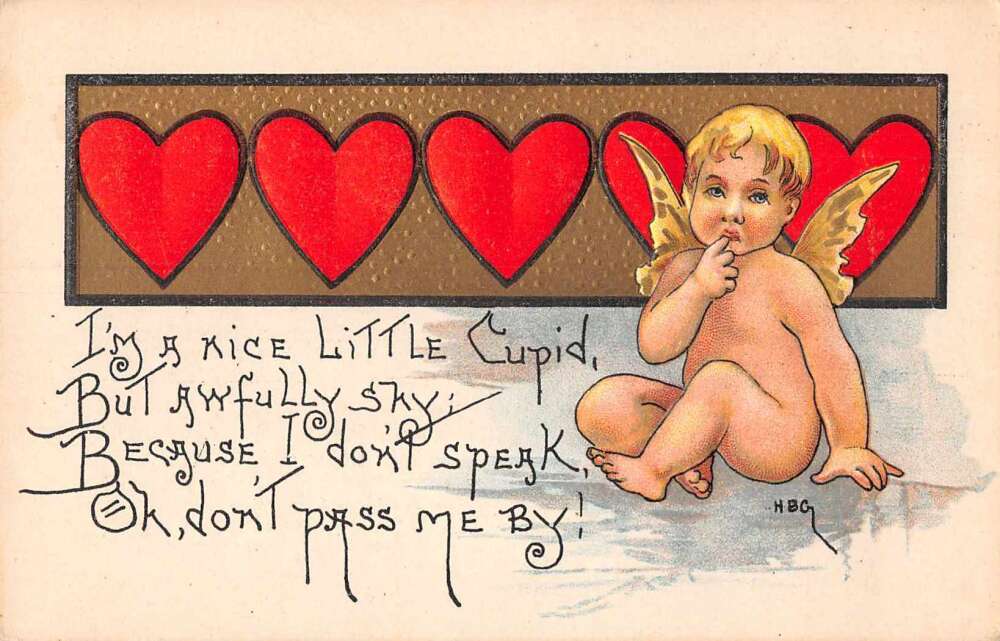 I'm a nice little Cupid,
But awfully shy;
Because I don't speak,
Oh, don't pass me by!
HBG